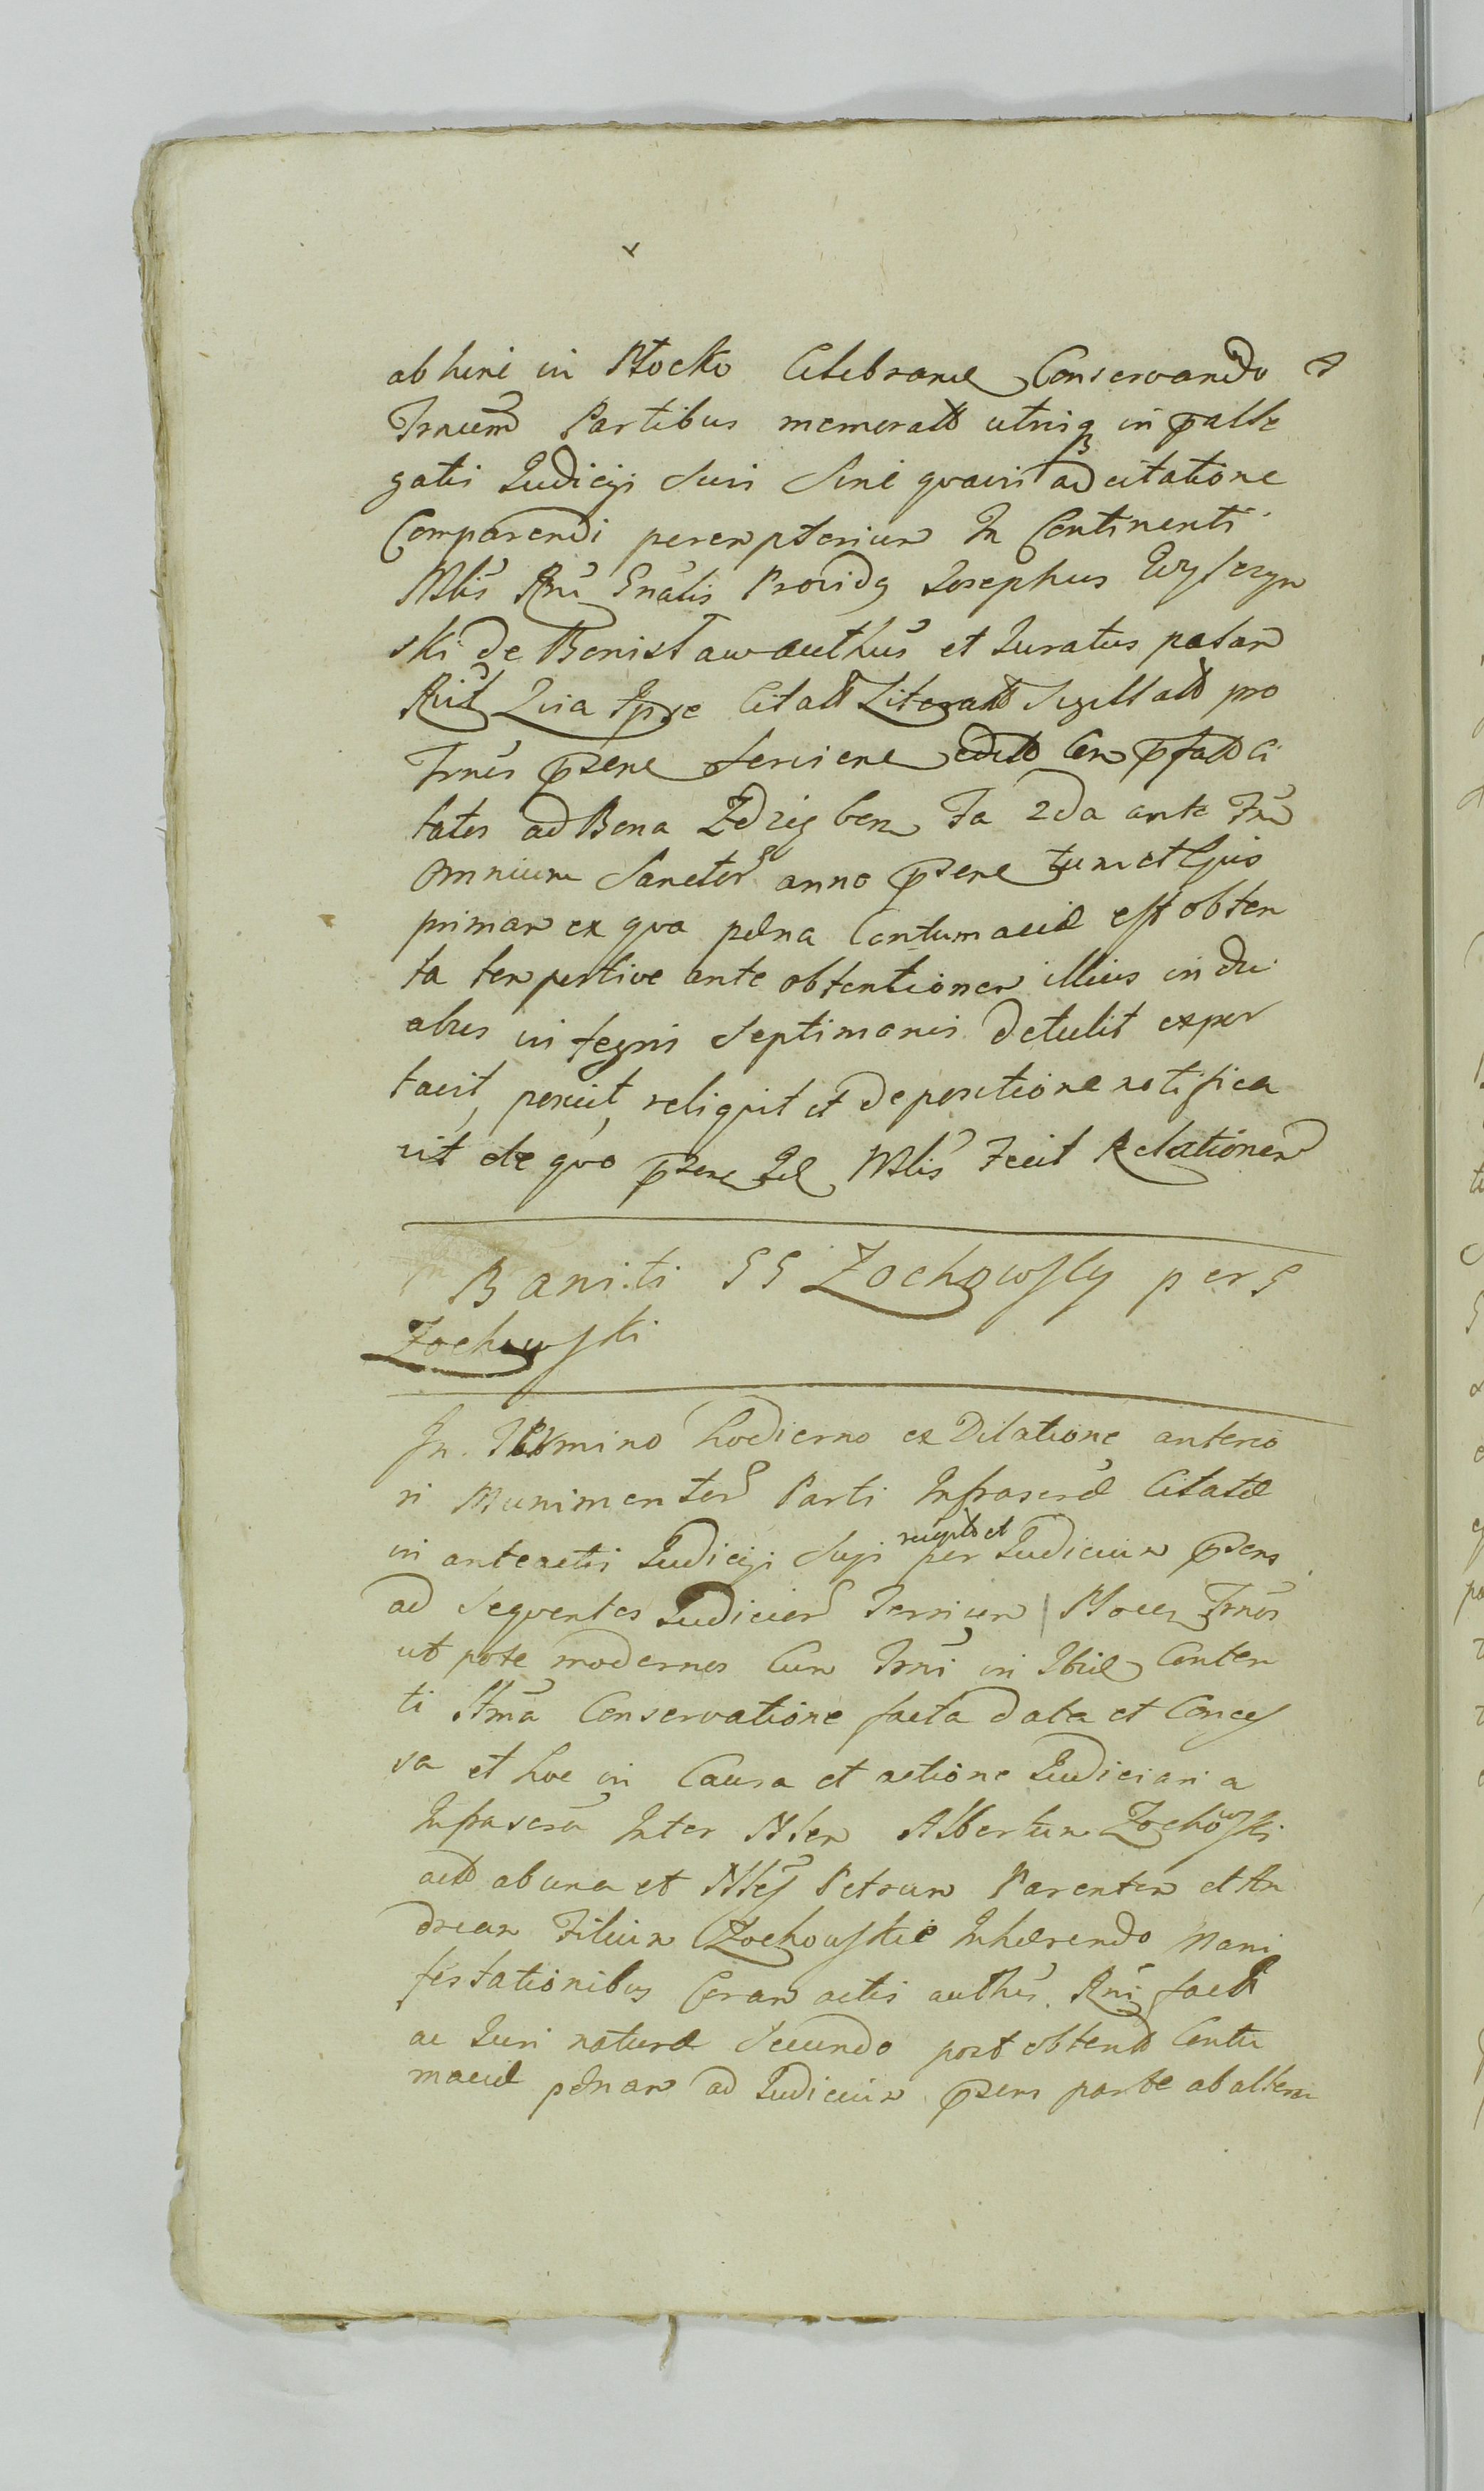 abhinc in Płocko Celebranđ Conservando &
Trnum Partibus memoratt utriq in palle
gatis Judicijs Suis Sine quavis adcitatione
Comparendi peremptorium In Continenti
Mlis Rni Gnalis Providg Josephus Wyszyn
ski de Bonisław authus et Juratus palam
Rit Quia Ipse Citatt Literatt Sigillatt pro
Trnis psene Serviene editt Cum psatt Ci
tatos ad Bona Zdzig Cem Fa 2da ante Fm
Omnium Sanctor anno psene
primam ex qva pæna Contumaciæ est obten
ta tempestive ante obtentionem illius in du
abus integris Septimanis detulit expor
tavit, posuit, reliquit et de positione notifica
vit de qvo psene Mlis Fecit Relationem
Baniti GG Zochowscy per G
Zochowski
In Termino hodierno ex Dilatione anterio
ri Munimentor Parti Infrascræ Citatæ
in anteactis Judicijs Suis recept et per Judicium psens
ad Seqventes Judicior Terrium Płocen Trnos
ut pote modernos Cum Trni in Ibid Conten
ti Ssma Conservatione facta data et Conces
sa et hoc in Causa et actione Judiciaria
Infrascra Inter Nlem Albertum Zochowski
actt ab una et Nles Petrum Parentem et An
dream Filium Zochowskie Inhærendo Mani
festationibus Coram actis authis Rni factt
ac Juri naturæ Secundo post obtentt Contu
maciæ pænam ad Judicium psens parte ab altera